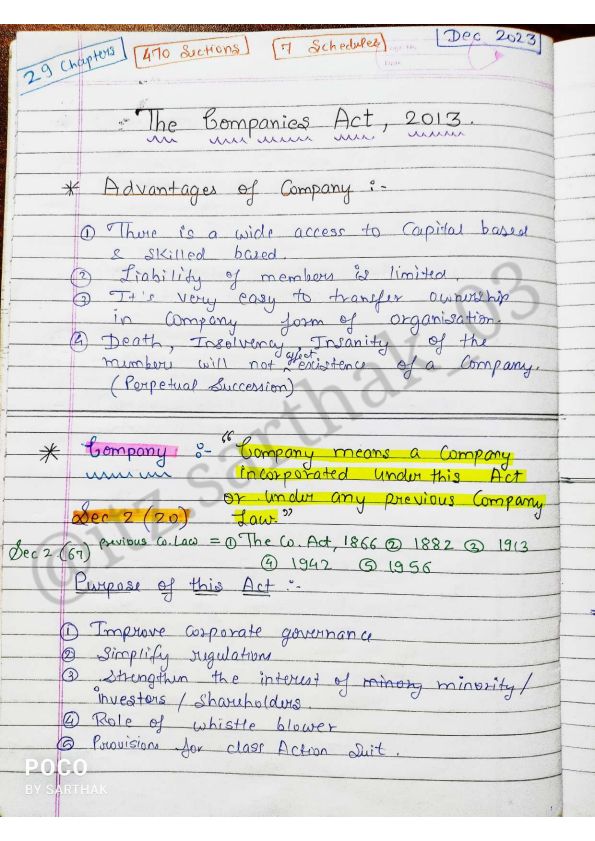 29 Chapters
470 Sections
7 Schedules
Dec 2023
:- The Companies Act, 2013.
* Advantages of Company :-
① There is a wide access to Capital based
& skilled based.
② Liability of members is limited.
③ It's very easy to transfer ownership
in Company form of organisation.
④ Death, Insolvency, Insanity of the
members will not affect existence of a Company.
(Perpetual Succession)
* Company :- "Company means a Company
incorporated under this Act
or under any previous Company
Sec 2 (20) Law."
Sec 2.(67) Previous Co. Law = ① The Co. Act, 1866 ② 1882 ③ 1913
④ 1942 ⑤ 1956
Purpose of this Act :-
① Improve corporate governance
② Simplify regulations
③ Strengthen the interest of minory minority/
investors / shareholders.
④ Role of whistle blower
⑤ Provisions for class Action Suit.
@itz_sarthak_03
POCO
BY SARTHAK